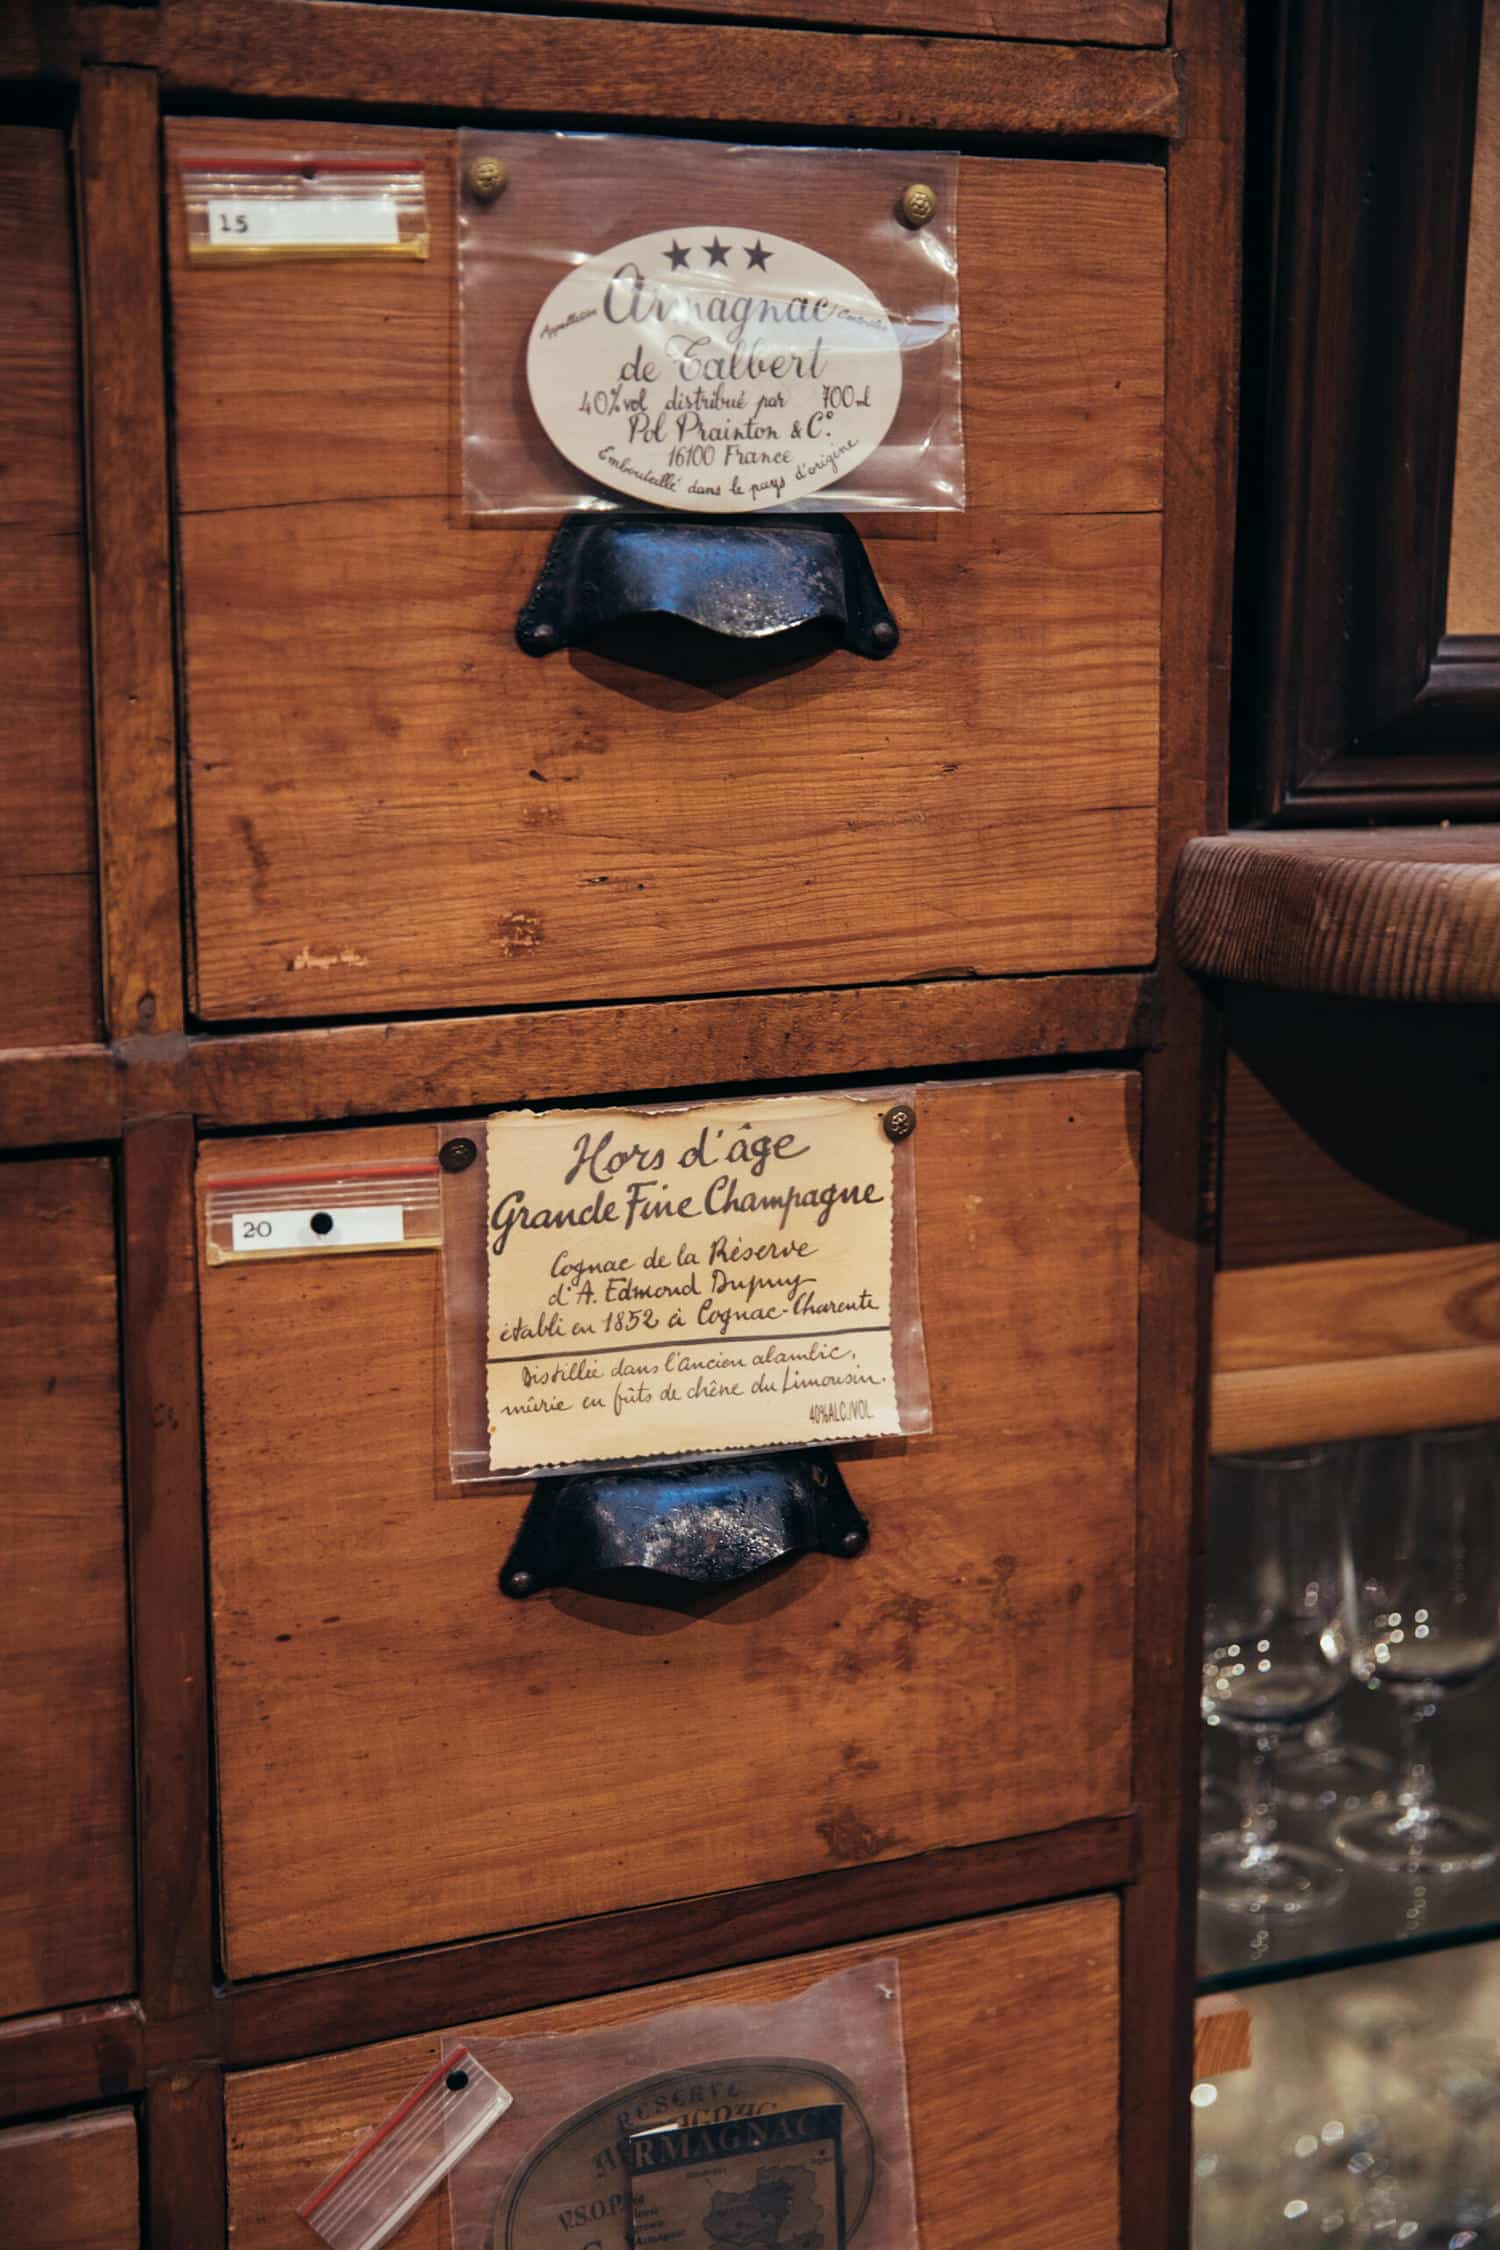 15
★★★
Appellation Armagnac Controlée
de Talbert
40% vol distribué par 700ml
Pol Prainton & Cº.
16100 France
Embouteillé dans le pays d'origine
20
Hors d'âge
Grande Fine Champagne
Cognac de la Réserve
d'A. Edmond Dupuy
établi en 1852 à Cognac-Charente
Distillée dans l'ancien alambic,
mûrie en fûts de chêne du Limousin.
40%ALC./VOL.
RESERVE
ARMAGNAC
V.S.O.P.